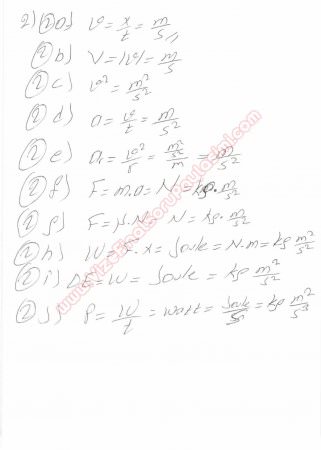 2) ② a) v = x/t = m/s
② b) V = |v| = m/s
② c) v² = m²/s²
② d) a = v/t = m/s²
② e) aᵣ = v²/r = m²/s²/m = m/s²
② f) F = m.a = N = kg. m/s²
② g) F = μ.N = N = kg. m/s²
② h) W = F.x = Joule = N.m = kg m²/s²
② i) ΔE = W = Joule = kg m²/s²
② j) P = W/t = watt = Joule/s = kg m²/s³